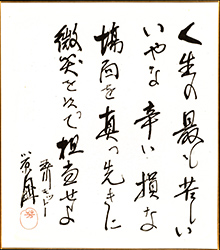 人生の最も苦しい
いやな辛い損な
場面を真っ先きに
微笑を以て担当せよ